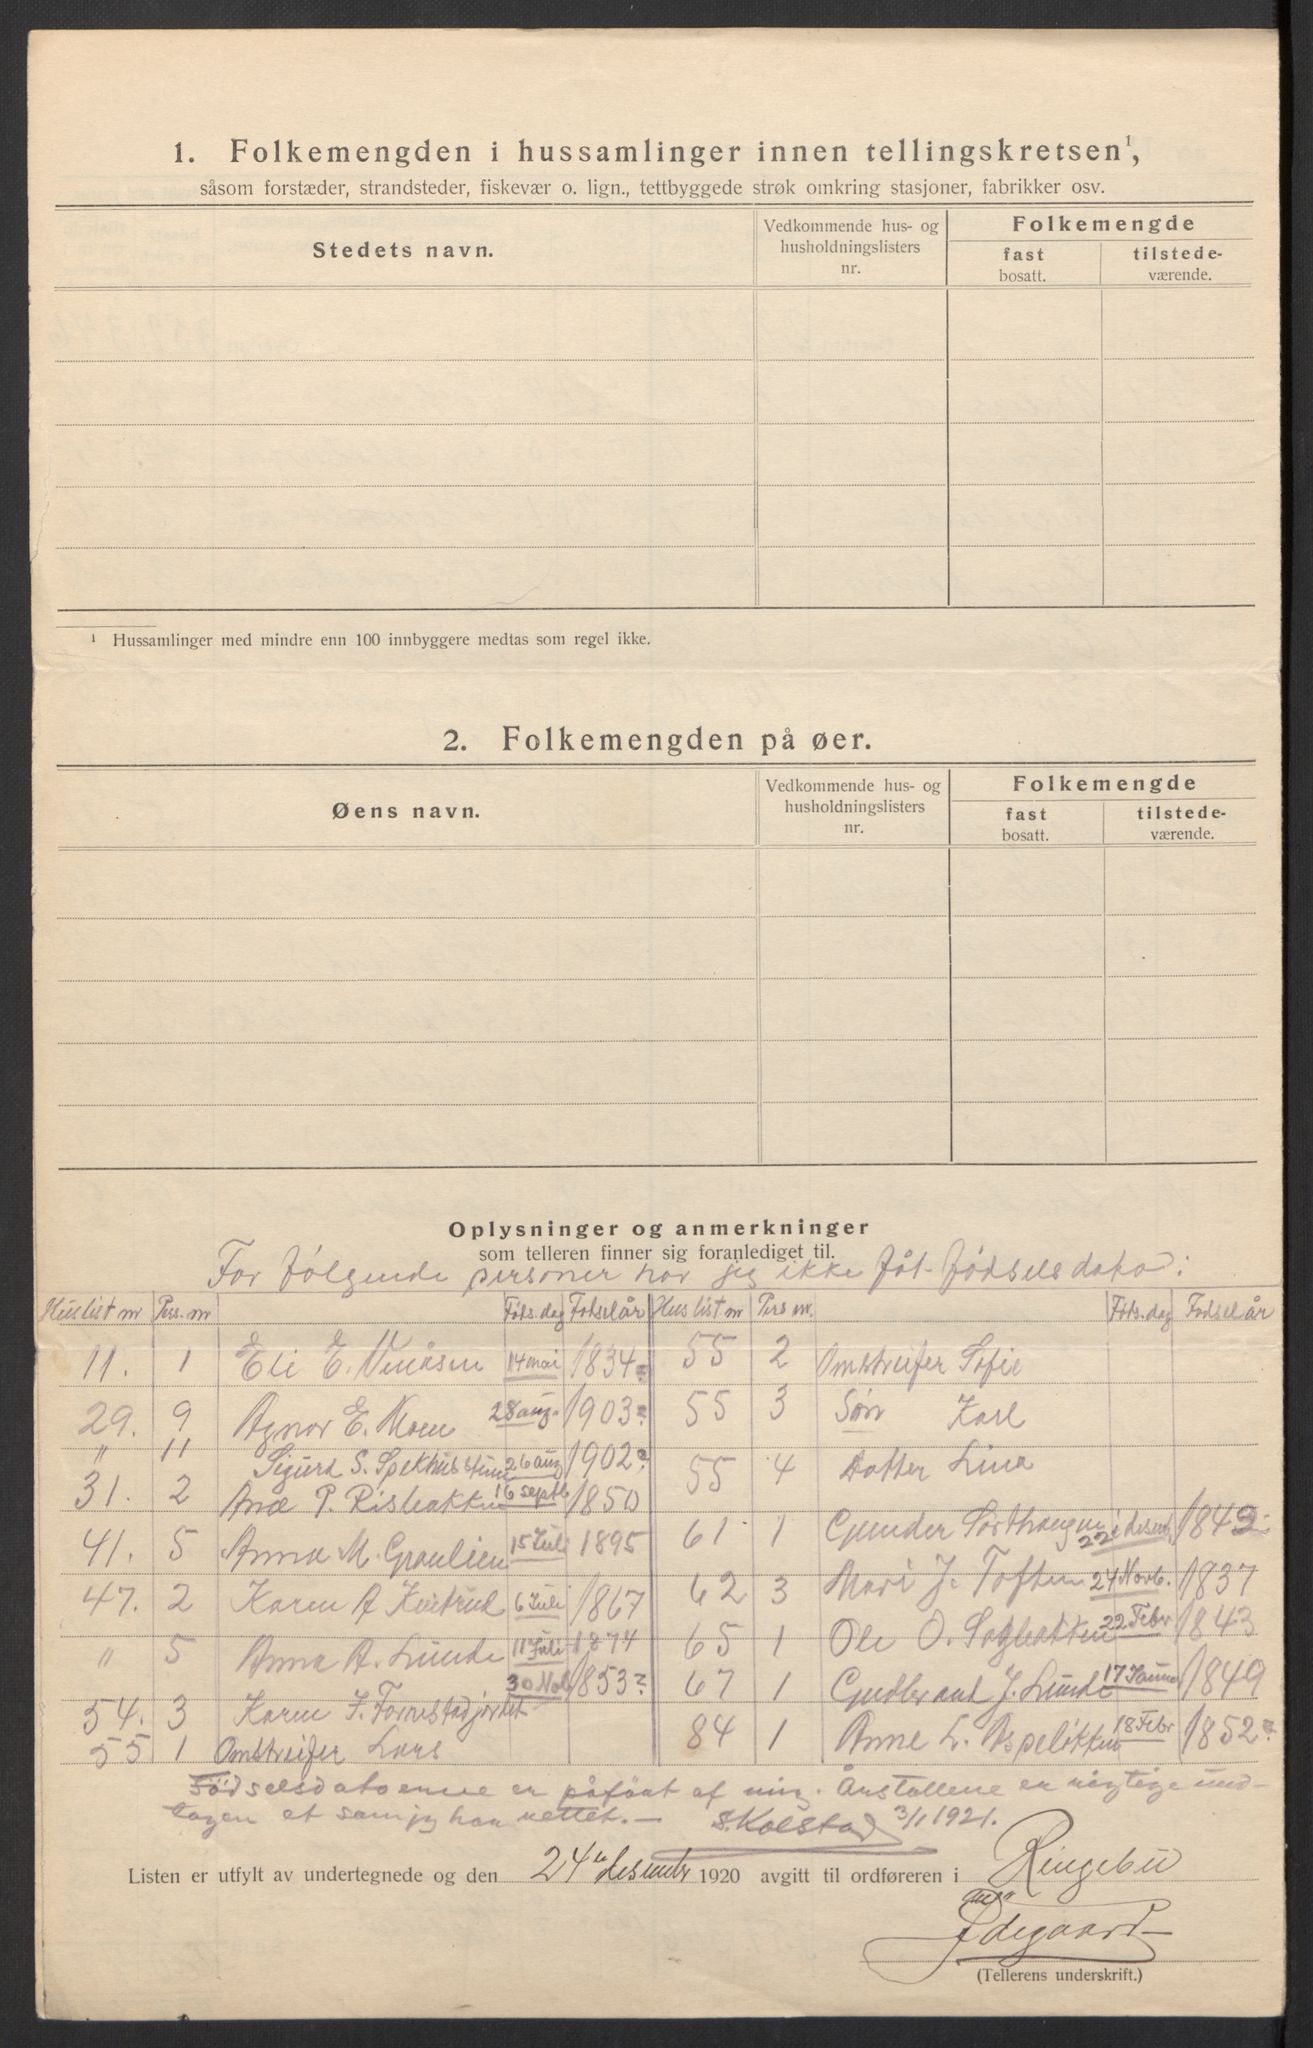 1. Folkemengden i hussamlinger innen tellingskretsen¹,
såsom forstæder, strandsteder, fiskevær o. lign., tettbyggede strøk omkring stasjoner, fabrikker osv.
Stedets navn.
Vedkommende hus- og
husholdningslisters
nr.
Folkemengde
fast
bosatt.
tilstede-
værende.
¹ Hussamlinger med mindre enn 100 innbyggere medtas som regel ikke.
2. Folkemengden på øer.
Øens navn.
Vedkommende hus- og
husholdningslisters
nr.
Folkemengde
fast
bosatt.
tilstede-
værende.
Oplysninger og anmerkninger
som telleren finner sig foranlediget til.
For følgende personer har jeg ikke fåt fødselsdato:
Huslist nr Pers. nr Føds. dag Fødselår
11. 1 Eli E. 14 mai 1834
29. 9 Agnar E. Moen 28 aug. 1903?
" 11 Sigurd S. 26 aug 1902?
31. 2 P. Risbakken 16 septb 1850
41. 5 Anna M. Graulien 15 Juli 1895
47. 2 Karen A 6 Juli 1867
" 5 Anna A. Lunde 11 Juli 1874
54. 3 Karen 30 Nob 1853?
55 1 Omstreifer Lars
Huslist nr Pers nr. Føds. dag Fødselår
55 2 Omstreifer Sofie
55 3 Søn Karl
55 4 Datter Lina
61 1 22 desmb. 1842
62 3 Mari J. Toften 24 Novb. 1837
65 1 Ole O. 22 Febr 1843
67 1 Gudbrand J. Lunde 17 Januar 1849
84 1 Anne L. Aspeløkken 18 Febr 1852?
Fødselsdatoerne er påført af mig. Årstallene er rigtige und-
tagen et som jeg har rettet.— S. Kolstad 3/1 1921.
Listen er utfylt av undertegnede og den 24 desember 1920 avgitt til ordføreren i Ringebu
Ødegaard
(Tellerens underskrift.)